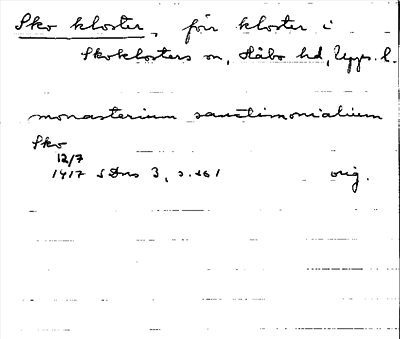 Sko kloster, förr kloster i
Skoklosters sn, Håbo hd, Upps. l.
monasterium sanctimonialium
Sko
12/7
1417 SDns 3, s. 261 orig.